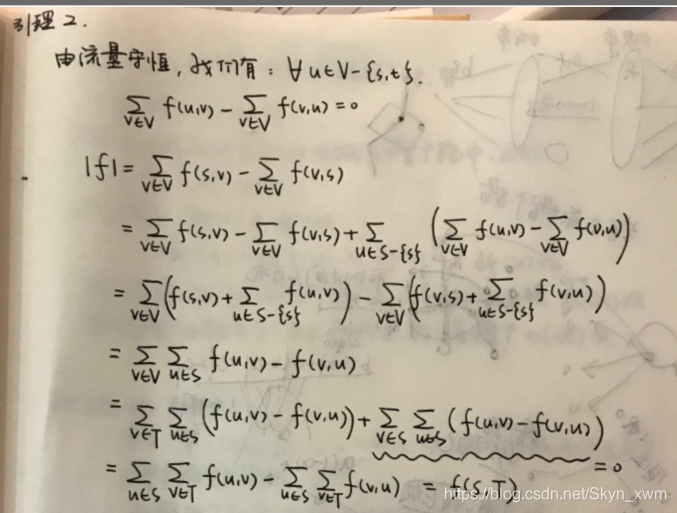 引理2.
由流量守恒,我们有:∀u∈V-{s,t}.
∑_{v∈V} f(u,v) - ∑_{v∈V} f(v,u) = 0
|f| = ∑_{v∈V} f(s,v) - ∑_{v∈V} f(v,s)
= ∑_{v∈V} f(s,v) - ∑_{v∈V} f(v,s) + ∑_{u∈S-{s}} (∑_{v∈V} f(u,v) - ∑_{v∈V} f(v,u))
= ∑_{v∈V} (f(s,v) + ∑_{u∈S-{s}} f(u,v)) - ∑_{v∈V} (f(v,s) + ∑_{u∈S-{s}} f(v,u))
= ∑_{v∈V} ∑_{u∈S} f(u,v) - f(v,u)
= ∑_{v∈T} ∑_{u∈S} (f(u,v) - f(v,u)) + ∑_{v∈S} ∑_{u∈S} (f(u,v) - f(v,u))
=0
= ∑_{u∈S} ∑_{v∈T} f(u,v) - ∑_{u∈S} ∑_{v∈T} f(v,u) = f(S,T)
https://blog.csdn.net/Skyn_xwm